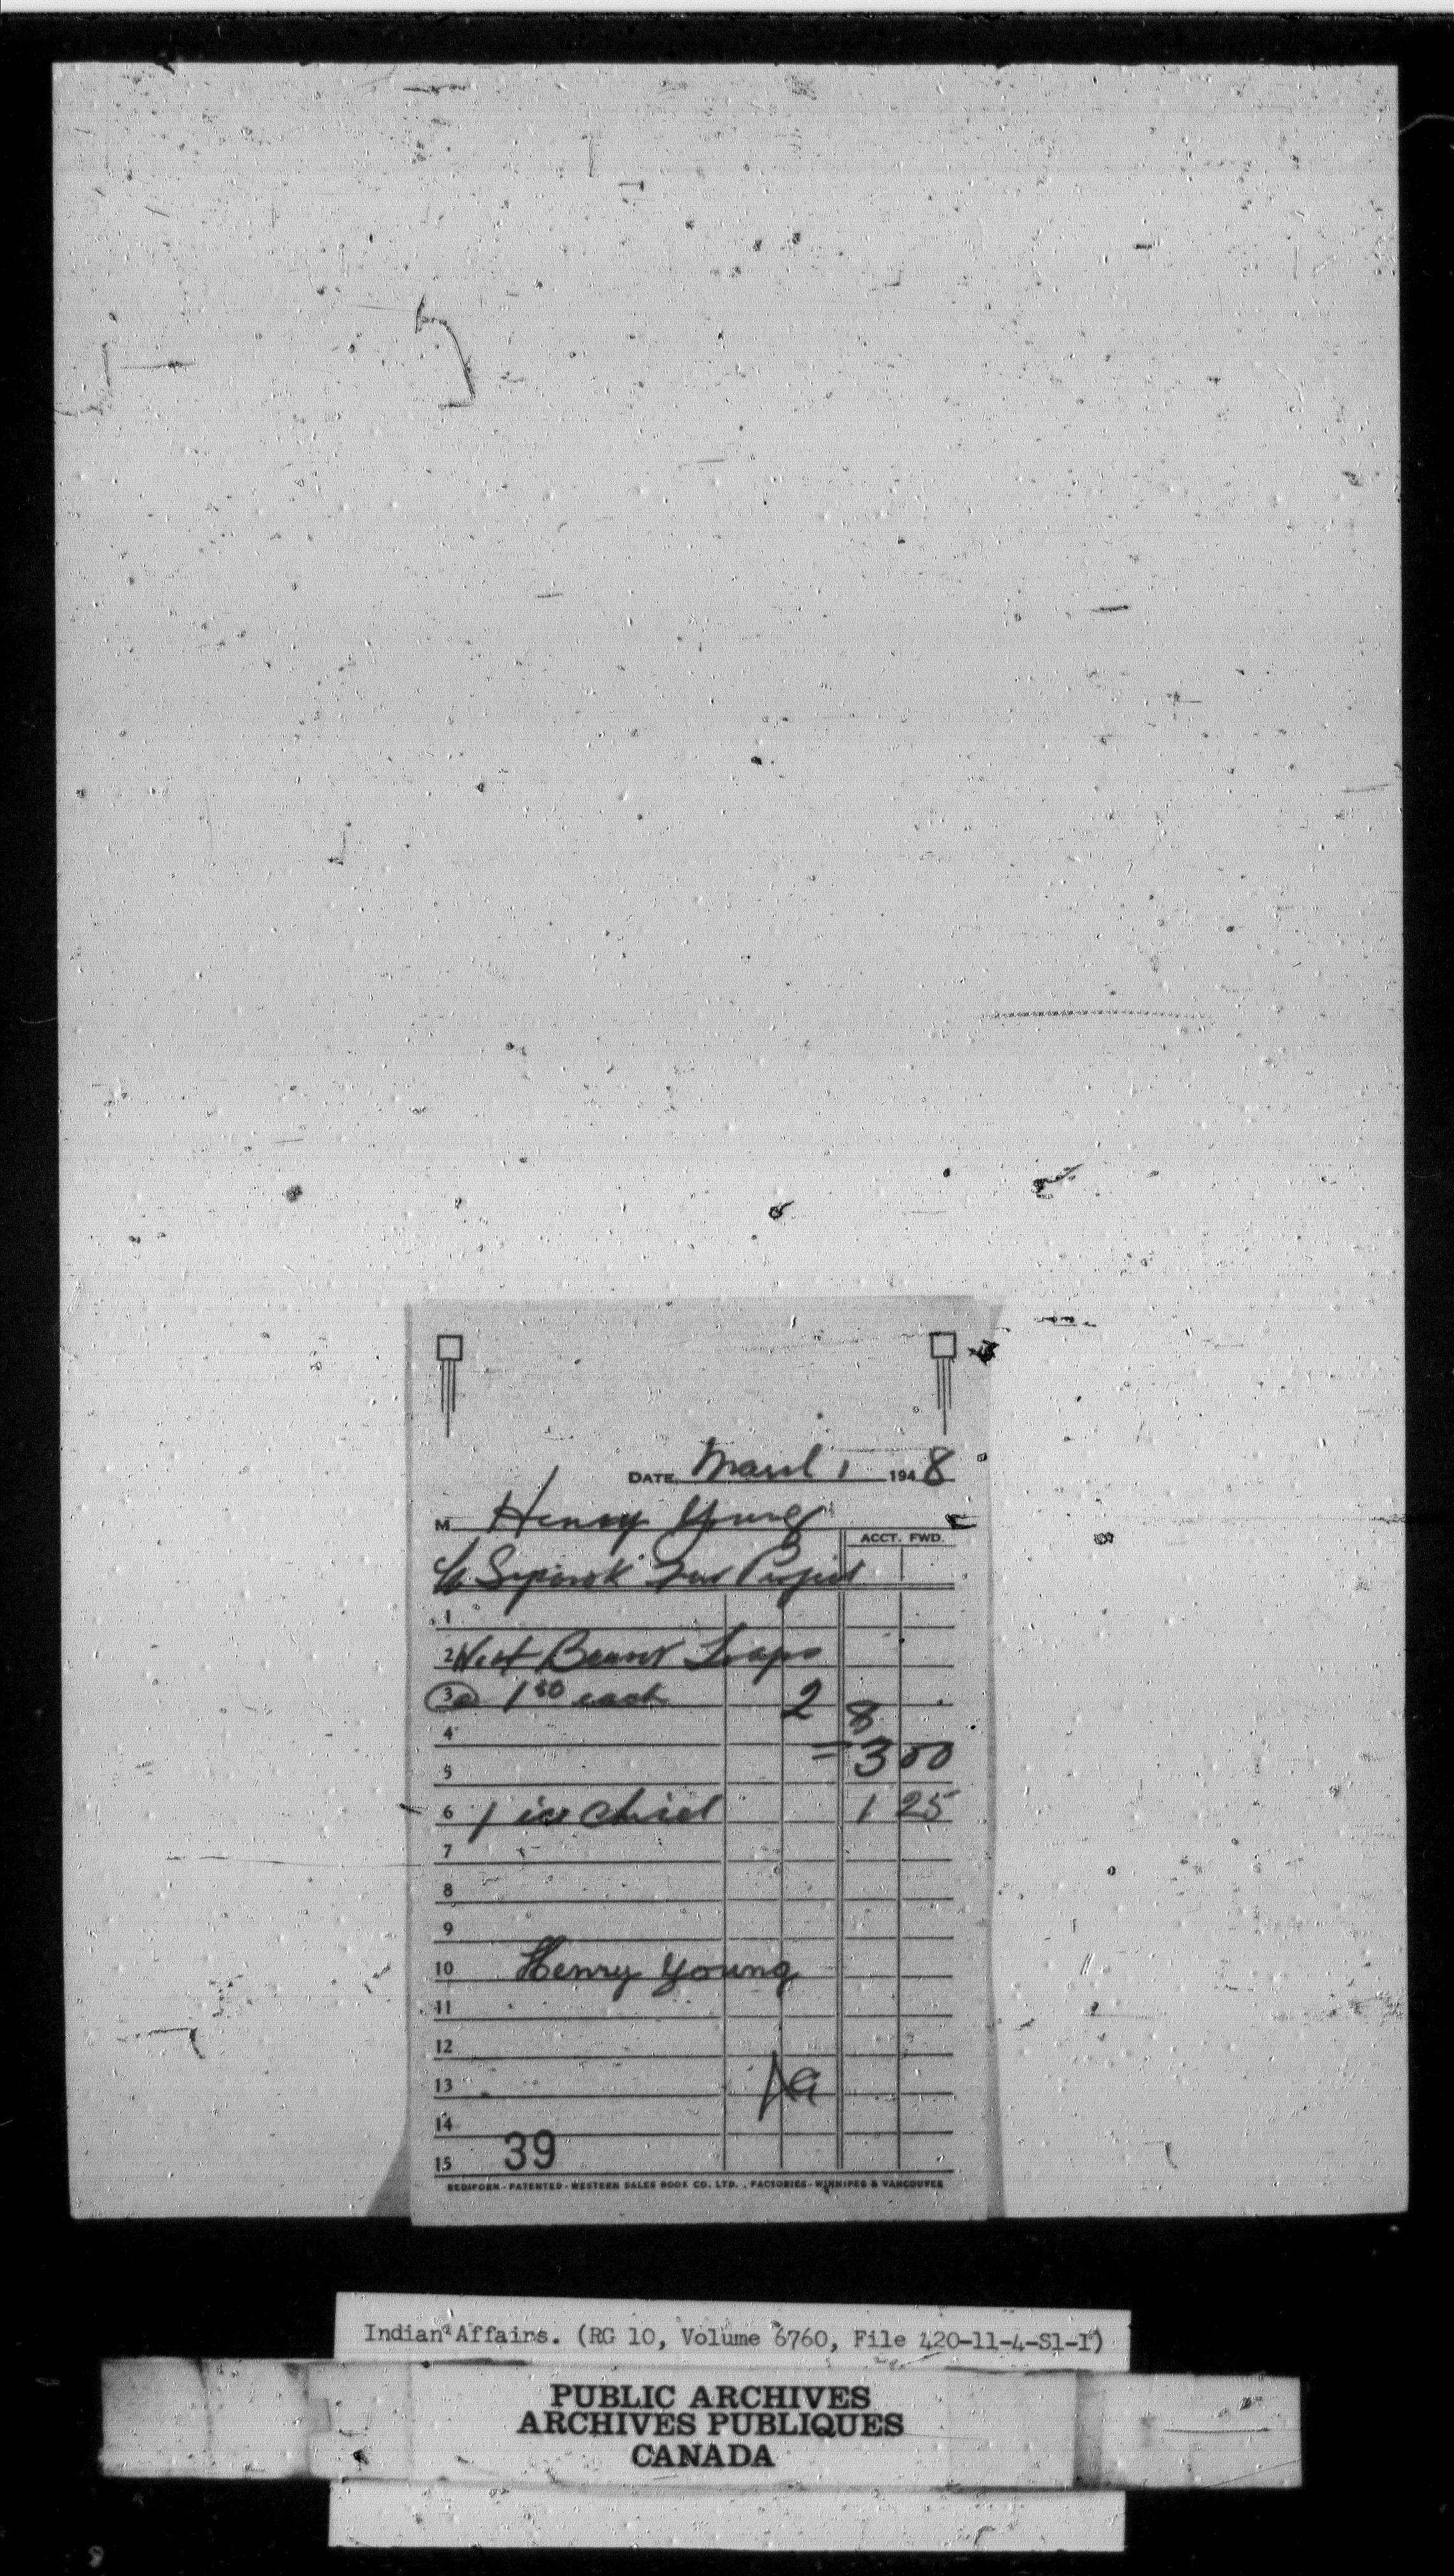 DATE March 1 1948
M Henry Young
ACCT. FWD.
c/o Sipanok Fur Project
1
2 Beaver Traps
3 @ 1 50 each 2
4 8
5 = 3 00
6 1 ice chisel 1 25
7
8
9
10 Henry Young
11
12
13
14
15 39
REDIFORM - PATENTED - WESTERN SALES BOOK CO. LTD. , FACTORIES - WINNIPEG & VANCOUVER
Indian Affairs. (RG 10, Volume 6760, File 420-11-4-S1-1)
PUBLIC ARCHIVES
ARCHIVES PUBLIQUES
CANADA